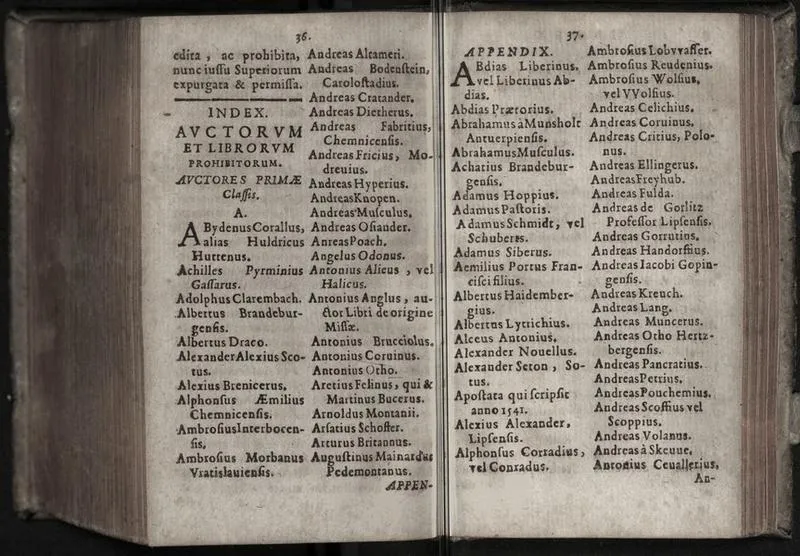 36.
edita, ac prohibita,
nunc iuſſu Superiorum
expurgata & permiſſa.
INDEX.
AVCTORVM
ET LIBRORVM
PROHIBITORVM.
AVCTORES PRIMÆ
Claſſis.
A.
ABydenus Corallus,
alias Huldricus
Huttenus.
Achilles Pyrminius
Gaſſarus.
Adolphus Clarembach.
Albertus Brandebur-
genſis.
Albertus Draco.
Alexander Aleſius Sco-
tus.
Alexius Brenicerus.
Alphonſus Æmilius
Chemnicenſis.
Ambroſius Interbocen-
ſis.
Ambroſius Morbanus
Vratislauienſis.
Andreas Altameri.
Andreas Bodenſtein,
Caroloſtadius.
Andreas Cratander.
Andreas Dietherus.
Andreas Fabritius,
Chemnicenſis.
Andreas Fricius, Mo-
dreuius.
Andreas Hyperius.
Andreas Knopen.
Andreas Muſculus.
Andreas Oſiander.
Anreas Poach.
Angelus Odonus.
Antonius Alicus, vel
Halicus.
Antonius Anglus, au-
ctor Libri de origine
Miſſæ.
Antonius Brucciolus.
Antonius Coruinus.
Antonius Otho.
Aretius Felinus, qui &
Martinus Bucerus.
Arnoldus Montanii.
Arſatius Schoffer.
Arturus Britannus.
Auguſtinus Mainardus
Pedemontanus.
APPEN-
37.
APPENDIX.
ABdias Liberinus,
vel Liberinus Ab-
dias.
Abdias Prætorius.
Abrahamus à Munsholt
Antuerpienſis.
Abrahamus Muſculus.
Acharius Brandebur-
genſis.
Adamus Hoppius.
Adamus Paſtoris.
Adamus Schmidt, vel
Schuberts.
Adamus Siberus.
Aemilius Portus Fran-
ciſci filius.
Albertus Haidember-
gius.
Albertus Lytrichius.
Alceus Antonius.
Alexander Nouellus.
Alexander Seton, Sco-
tus.
Apoſtata qui ſcripſit
anno 1541.
Alexius Alexander,
Lipſenſis.
Alphonſus Corradius,
vel Conradus.
Ambroſius Lobvvaſſer.
Ambroſius Reudenius.
Ambroſius Wolfius,
vel VVolfius.
Andreas Celichius.
Andreas Coruinus.
Andreas Critius, Polo-
nus.
Andreas Ellingerus.
Andreas Freyhub.
Andreas Fulda.
Andreas de Gorlitz
Profeſſor Lipſenſis.
Andreas Gorrutius.
Andreas Handorffius.
Andreas Iacobi Gopin-
genſis.
Andreas Kreuch.
Andreas Lang.
Andreas Muncerus.
Andreas Otho Hertz-
bergenſis.
Andreas Pancratius.
Andreas Petrius.
Andreas Pouchemius.
Andreas Scoffius vel
Scoppius.
Andreas Volanus.
Andreas à Skeuue.
Antonius Ceuallerius,
An-